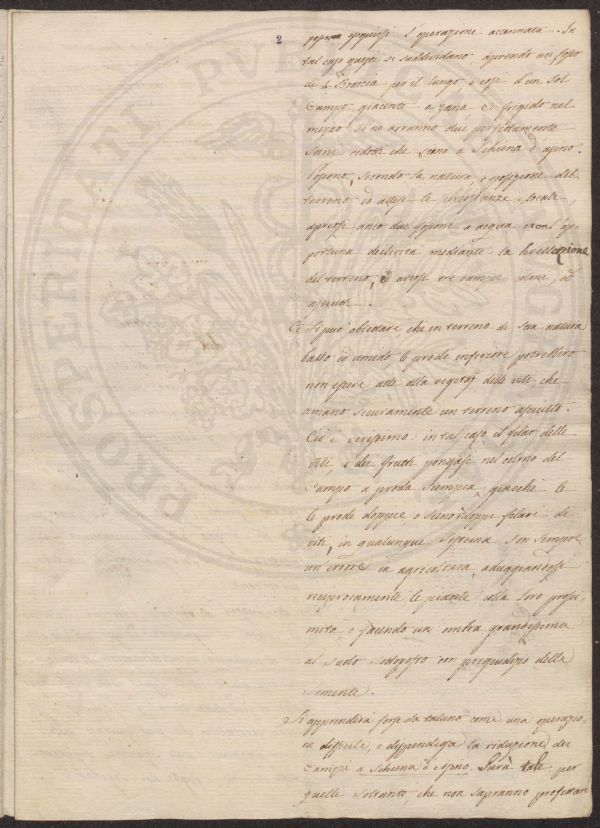 2
possa eseguirsi l'operazione accennata. In
tal caso questi si suddividano aprendo un fosso
di 2 Braccia per il lungo, e così d'un sol
Campo giacente a zana e frigido nel
mezzo se ne avranno due perfettamente
sani ridotti che siano a Schiena d'asino.
Possono, secondo la natura, e posizione del
terreno ed attese le circostanze locali,
aprirsi anco due fossoni a acqua con l'op-
portuna declività mediante la livellazione
del terreno, ed aversi tre campi colmi, ed
asciutti.
Si può obiettare che in terreno di sua natura
basso ed umido le prode inferiori potrebbero
non essere atte alla vegetaz delle viti, che
amano sicuramente un terreno asciutto.
Ciò è verissimo: in tal caso il filar delle
viti, e dei frutti pongasi nel colmo del
Campo a proda scempia, giacchè le
le prode doppie o sieno doppi filari di
viti, in qualunque sistema son sempre
un errore in agricoltura, aduggiandosi
reciprocamente le piante colla loro prossi
mità e facendo un ombra grandissima
al suolo sottoposto con pregiudizio delle
semente.
Si apprenderà forse da taluno come una operazio
ne difficile, e dispendiosa la riduzione dei
Campi a Schiena d'asino. Sarà tale per
quelle soltanto che non sapranno profittare